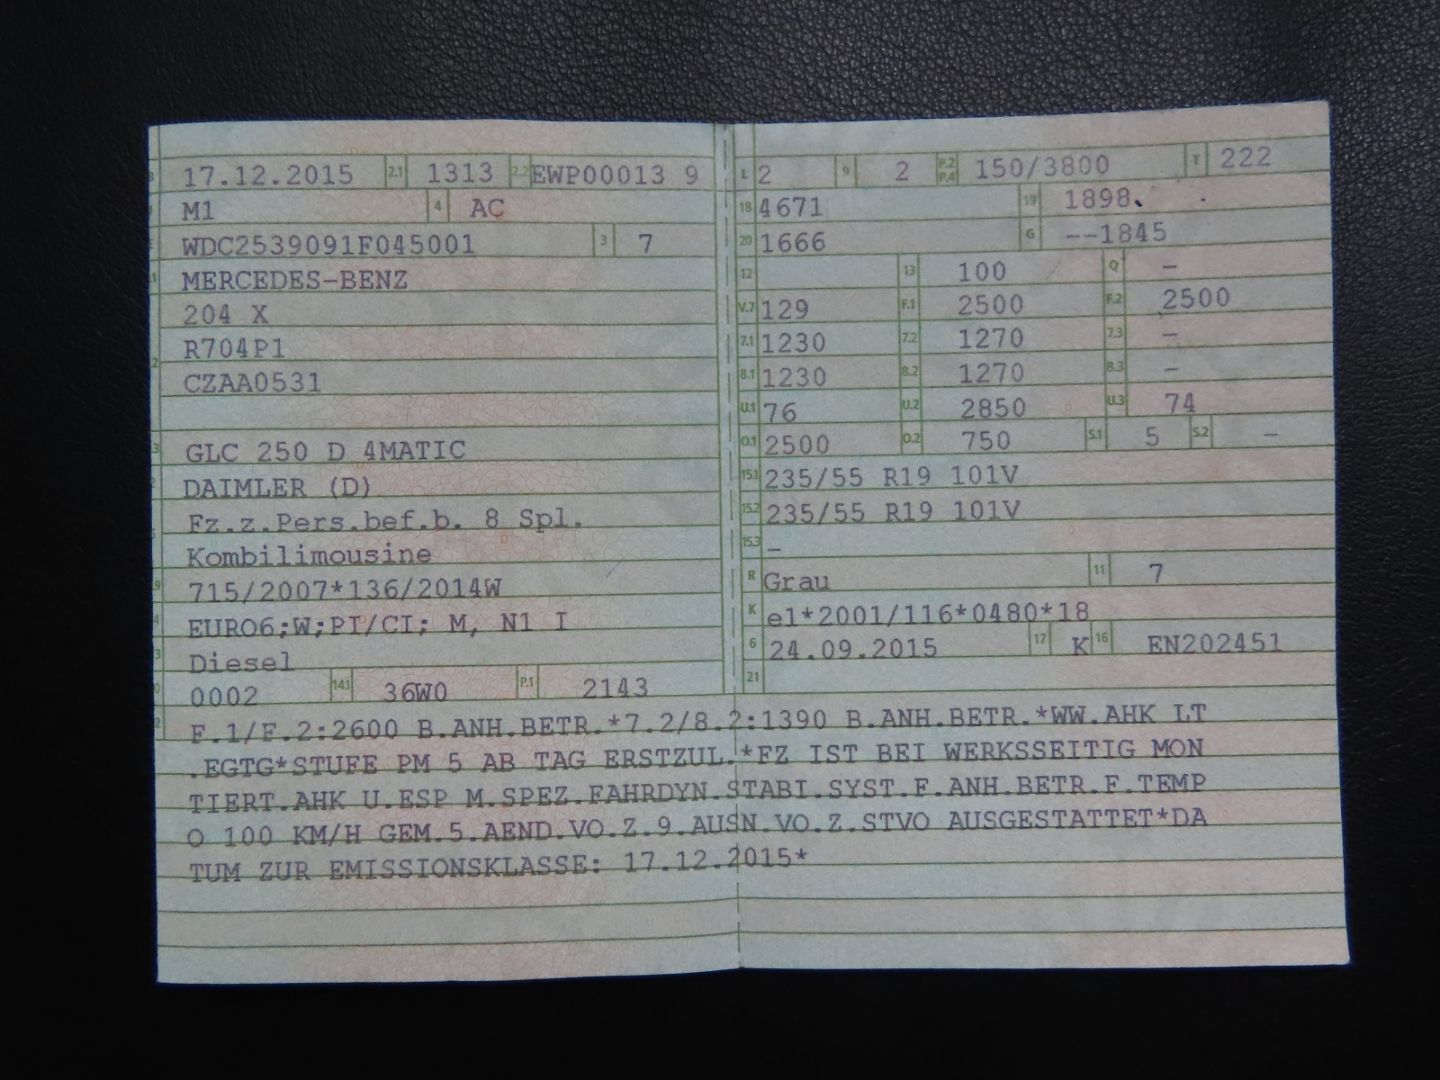 17.12.2015 2.1 1313 2.2 EWP00013 9
M1 4 AC
WDC2539091F045001 3 7
MERCEDES-BENZ
204 X
R704P1
CZAA0531
GLC 250 D 4MATIC
DAIMLER (D)
Fz.z.Pers.bef.b. 8 Spl.
Kombilimousine
715/2007*136/2014W
EURO6;W;PI/CI; M, N1 I
Diesel
0002 14.1 36W0 P.1 2143
L 2 9 2 P.2 P.4 150/3800 T 222
18 4671 19 1898
20 1666 G --1845
12 13 100 Q -
V.7 129 F.1 2500 F.2 2500
7.1 1230 7.2 1270 7.3 -
8.1 1230 8.2 1270 8.3 -
U.1 76 U.2 2850 U.3 74
O.1 2500 O.2 750 S.1 5 S.2 -
15.1 235/55 R19 101V
15.2 235/55 R19 101V
15.3 -
R Grau 11 7
K e1*2001/116*0480*18
6 24.09.2015 17 K 16 EN202451
21
F.1/F.2:2600 B.ANH.BETR.*7.2/8.2:1390 B.ANH.BETR.*WW.AHK LT
.EGTG*STUFE PM 5 AB TAG ERSTZUL.*FZ IST BEI WERKSSEITIG MON
TIERT.AHK U.ESP M.SPEZ.FAHRDYN.STABI.SYST.F.ANH.BETR.F.TEMP
O 100 KM/H GEM.5.AEND.VO.Z.9.AUSN.VO.Z.STVO AUSGESTATTET*DA
TUM ZUR EMISSIONSKLASSE: 17.12.2015*